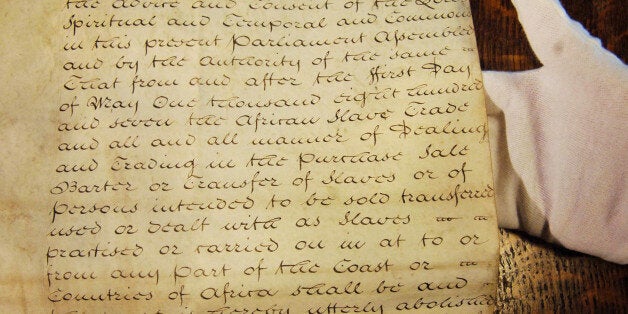 the Advice and Consent of the Lords
Spiritual and Temporal and Commons
in this present Parliament Assembled
and by the Authority of the same
That from and after the First Day
of May One thousand eight hundred
and seven the African Slave Trade
and all and all manner of Dealing
and Trading in the Purchase Sale
Barter or Transfer of Slaves or of
Persons intended to be sold transferred
used or dealt with as Slaves
practised or carried on in at to or
from any part of the Coast or
Countries of Africa shall be and
is hereby utterly abolish